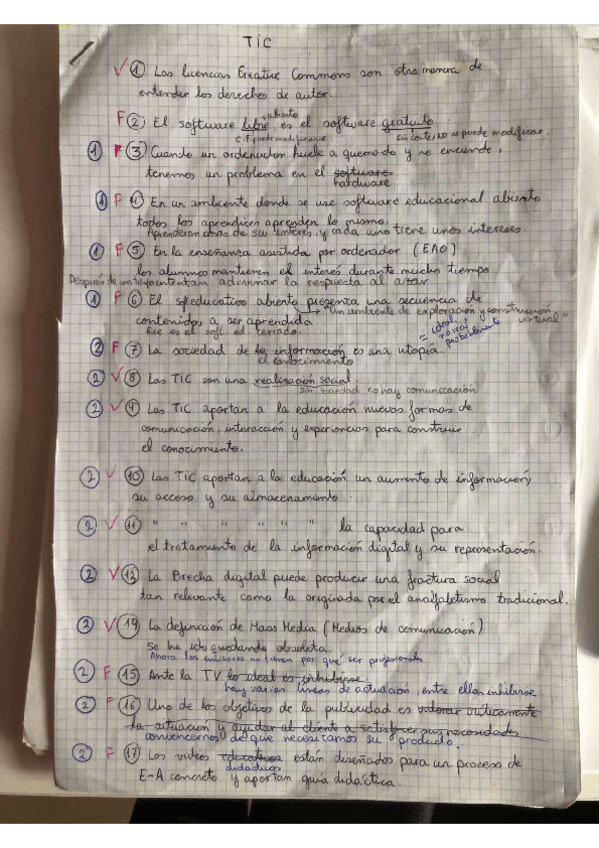 TIC
V ① Las licencias Creative Commons son otra manera de
entender los derechos de autor.
abierto
F ② El software libre es el software gratuito
sin coste, no se puede modificar.
① F ③ Cuando un ordenador huele a quemado y no enciende,
tenemos un problema en el software
hardware
① F ④ En un ambiente donde se use software educacional abierto
todos los aprendices aprenden lo mismo.
Aprenderían cosas de su interés, y cada uno tiene unos intereses
① F ⑤ En la enseñanza asistida por ordenador (EAO)
los alumnos mantienen el interés durante mucho tiempo
Después de un tiempo intentan adivinar la respuesta al azar
① F ⑥ El sf educativo abierto presenta una secuencia de
contenidos a ser aprendida → "Un ambiente de exploración y construcción
virtual"
Ese es el soft. ed. cerrado.
= ideal, no real probablemente
② F ⑦ La sociedad de la información es una utopía.
el conocimiento
② V ⑧ Las TIC son una realización social.
sin sociedad no hay comunicación
② V ⑨ Las TIC aportan a la educación nuevas formas de
comunicación, interacción y experiencias para construir
el conocimiento.
② V ⑩ Las TIC aportan a la educación un aumento de información,
su acceso y su almacenamiento.
② V ⑪ " " " " " " la capacidad para
el tratamiento de la información digital y su representación.
② V ⑫ La Brecha digital puede producir una fractura social
tan relevante como la originada por el analfabetismo tradicional.
② V ⑭ La definición de Mass Media (Medios de comunicación)
se ha ido quedando obsoleta.
Ahora los emisores no tienen por qué ser profesionales
② F ⑮ Ante la TV lo ideal es inhibirse
hay varias líneas de actuación, entre ellas inhibirse
② F ⑯ Uno de los objetivos de la publicidad es valorar críticamente
la situación y ayudar al cliente a satisfacer sus necesidades
convencernos de que necesitamos su producto.
② F ⑰ Los videos educativos están diseñados para un proceso de
didácticos
E-A concreto y aportan guía didáctica.